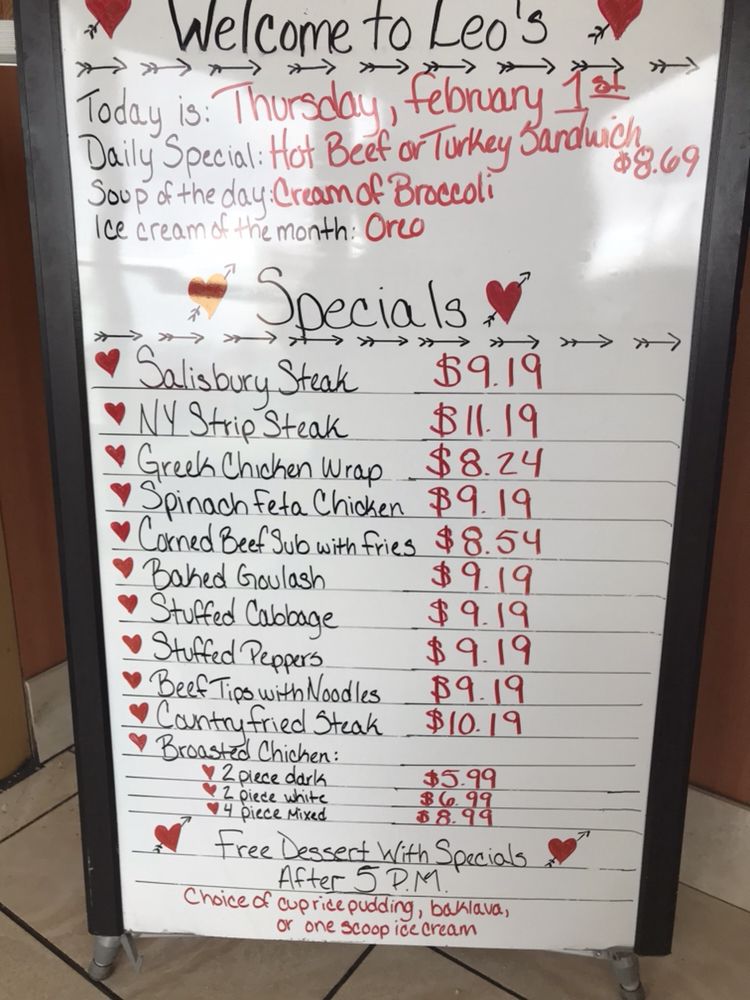 Welcome to Leo's
Today is: Thursday, february 1st
Daily Special: Hot Beef or Turkey Sandwich $8.69
Soup of the day: Cream of Broccoli
Ice cream of the month: Oreo
Specials
Salisbury Steak $9.19
NY Strip Steak $11.19
Greek Chicken Wrap $8.24
Spinach Feta Chicken $9.19
Corned Beef Sub with fries $8.54
Baked Goulash $9.19
Stuffed Cabbage $9.19
Stuffed Peppers $9.19
Beef Tips with Noodles $9.19
Country fried Steak $10.19
Broasted Chicken:
2 piece dark $5.99
2 piece white $6.99
4 piece Mixed $8.99
Free Dessert With Specials
After 5 P.M.
Choice of cup rice pudding, baklava,
or one scoop ice cream